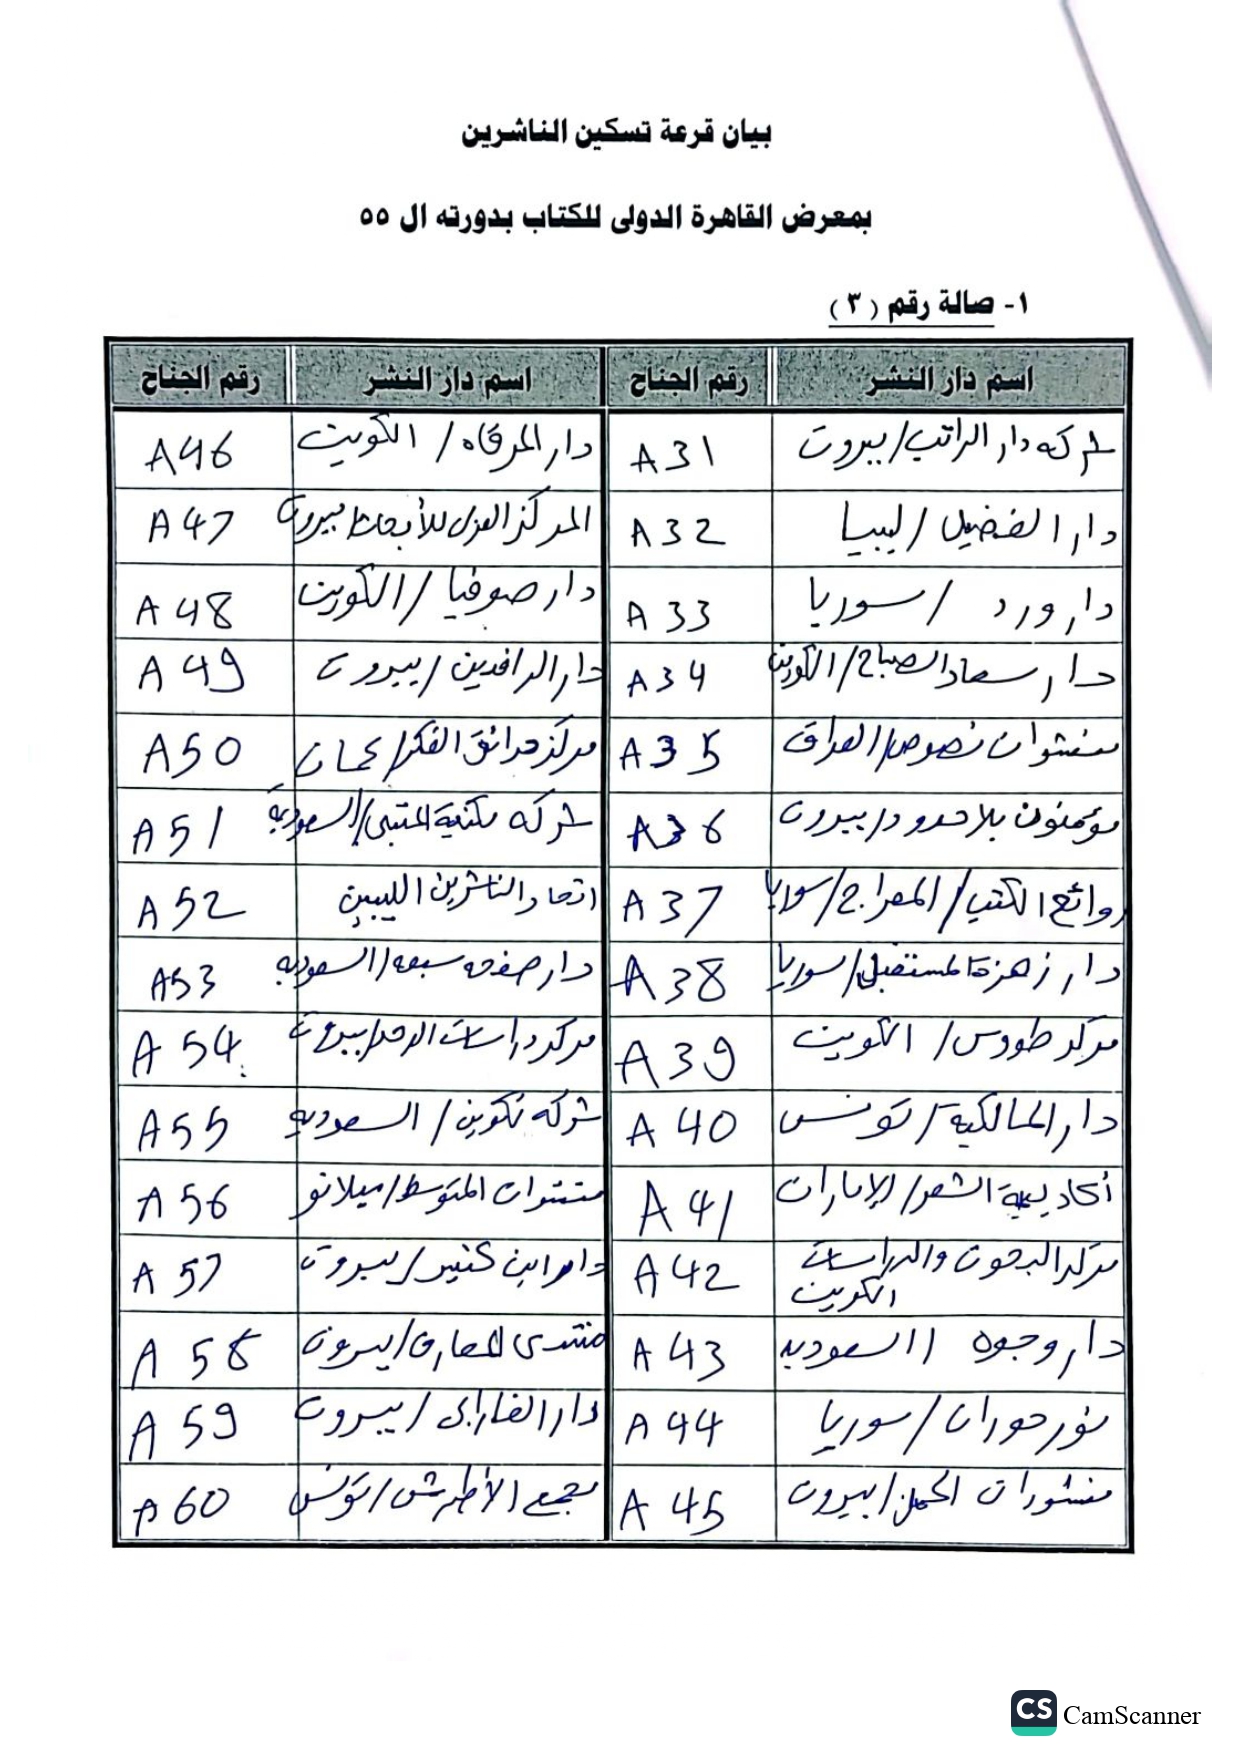 بيان قرعة تسكين الناشرين
بمعرض القاهرة الدولى للكتاب بدورته ال ٥٥
١- صالة رقم (٣)
اسم دار النشر رقم الجناح اسم دار النشر رقم الجناح
شركه دار الراتب/بيروت A31 دار المرقاه/الكويت A46
دار الفضيل/ليبيا A32 المركز العربى للأبحاث بيروت A47
دار ورد/سوريا A33 دار صوفيا/الكويت A48
دار سعاد الصباح/الكويت A34 دار الرافدين/بيروت A49
منشوات نصوص/العراق A35 مركز حدائق الفكر/عمان A50
مؤمنون بلا حدود/بيروت A36 شركه مكتبة المتنبى/السعوديه A51
روائع الكتب/المعراج/سوريا A37 اتحاد الناشرين الليبين A52
دار زهرة المستقبل/سوريا A38 دار صفحه سبعه/السعوديه A53
مركز طووس/الكويت A39 مركز دراسات الوحدة/بيروت A54
دار المالكية/تونس A40 شركه تكوين/السعوديه A55
أكاديمية الشعر/الإمارات A41 منشوات المتوسط/ميلانو A56
مركز البحوث والدراسات الكويت A42 دار ابن كثير/بيروت A57
دار وجوه/السعوديه A43 منتدى المعارف/بيروت A58
نور حوران/سوريا A44 دار الفارابى/بيروت A59
منشورات الجمل/بيروت A45 مجمع الأطرش/تونس A60
CS CamScanner